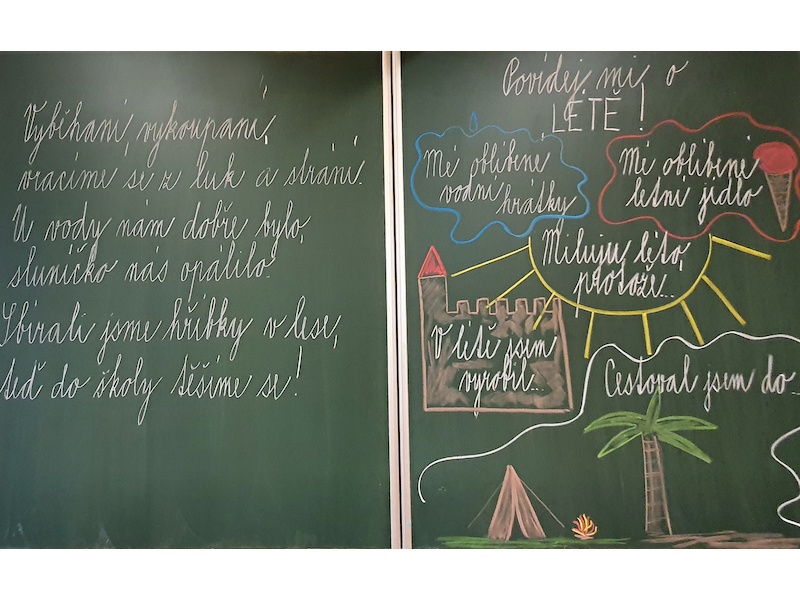 Vyběhaní, vykoupaní,
vracíme se z luk a strání.
U vody nám dobře bylo,
sluníčko nás opálilo.
Sbírali jsme hříbky v lese,
teď do školy těšíme se!
Povídej mi o
LÉTĚ!
Mé oblíbené
vodní hrátky
Mé oblíbené
letní jídlo
Miluju léto,
protože...
V létě jsem
vyrobil...
Cestoval jsem do...